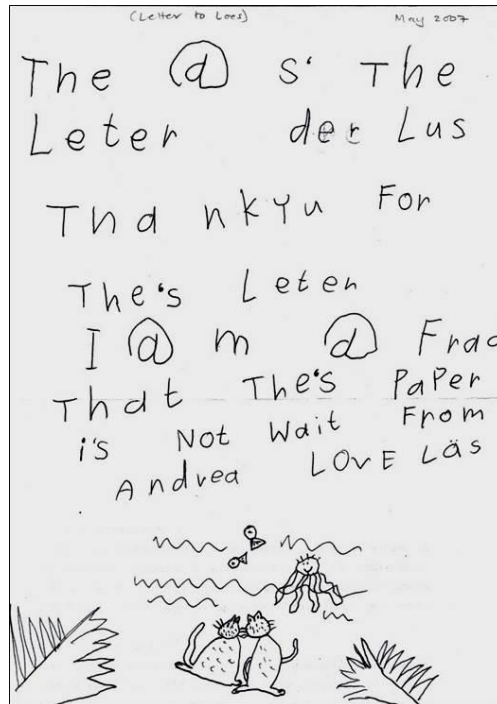 (Letter to Loes) May 2007
The @ s' The
Leter der Lus
Tha nkyu For
The's Leter
I @ m @ Frac
That The's PaPer
i's Not Wait From
Andrea LOVE Läs